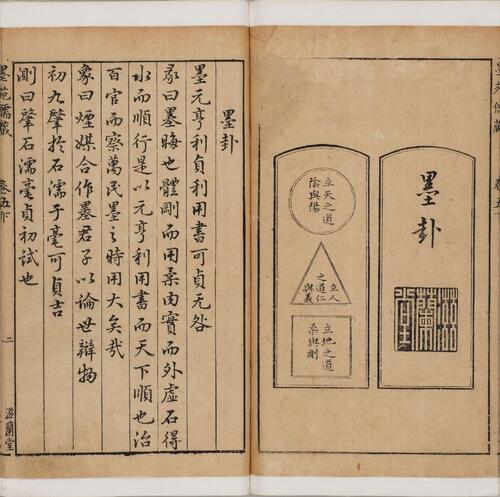 墨卦
立天之道
陰與陽
立人
之道仁
與義
立地之道
柔與剛
墨卦
墨元亨利貞利用書可貞无咎
彖曰墨晦也體剛而用柔內實而外虛石得
水而順行是以元亨利用書而天下順也治
百官而察萬民墨之時用大矣哉
象曰煙媒合作墨君子以論世辯物
初九肇於石濡于毫可貞吉
測曰肇石濡毫貞初試也
墨苑
儒藏
卷五下
二
滋蘭堂